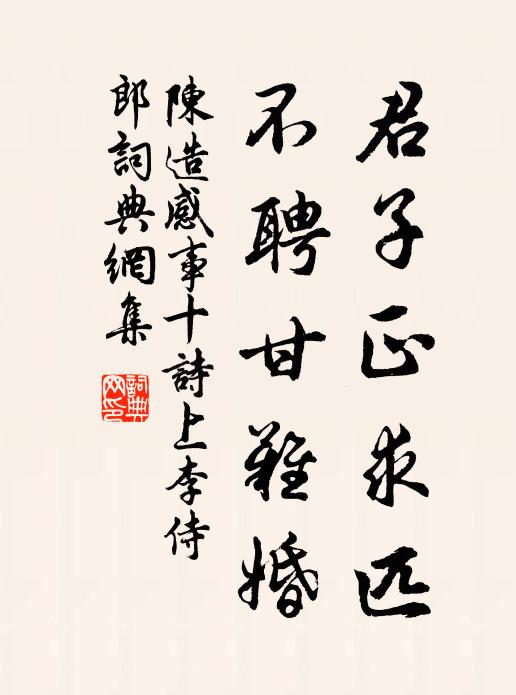 君子正求匹
不聘甘難婚
陳造感事十詩上李侍
郎詞典網集
詞典
網印